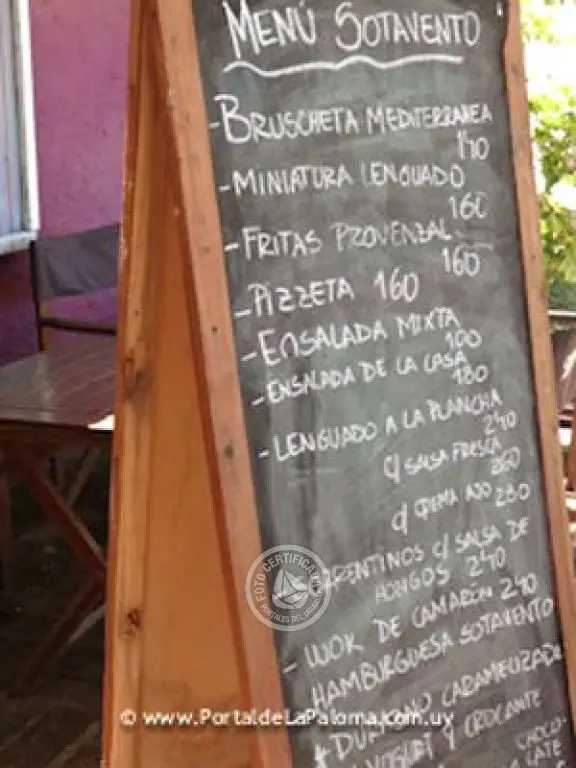 MENÚ SOTAVENTO
- BRUSCHETA MEDITERRANEA
140
- MINIATURA LENGUADO
160
- FRITAS PROVENZAL
160
- PIZZETA 160
- ENSALADA MIXTA
100
- ENSALADA DE LA CASA
180
- LENGUADO A LA PLANCHA
240
c/ SALSA FRESCA
260
c/ CREMA AJO 280
c/ SALSA DE
HONGOS 240
- WOK DE CAMARÓN 240
HAMBURGUESA SOTAVENTO
DURAZNO CARAMELIZADO
YOGURT Y CROCANTE
CHOCO-
LATE
FOTO CERTIFICADA
PORTALES DEL URUGUAY
© www.PortaldeLaPaloma.com.uy